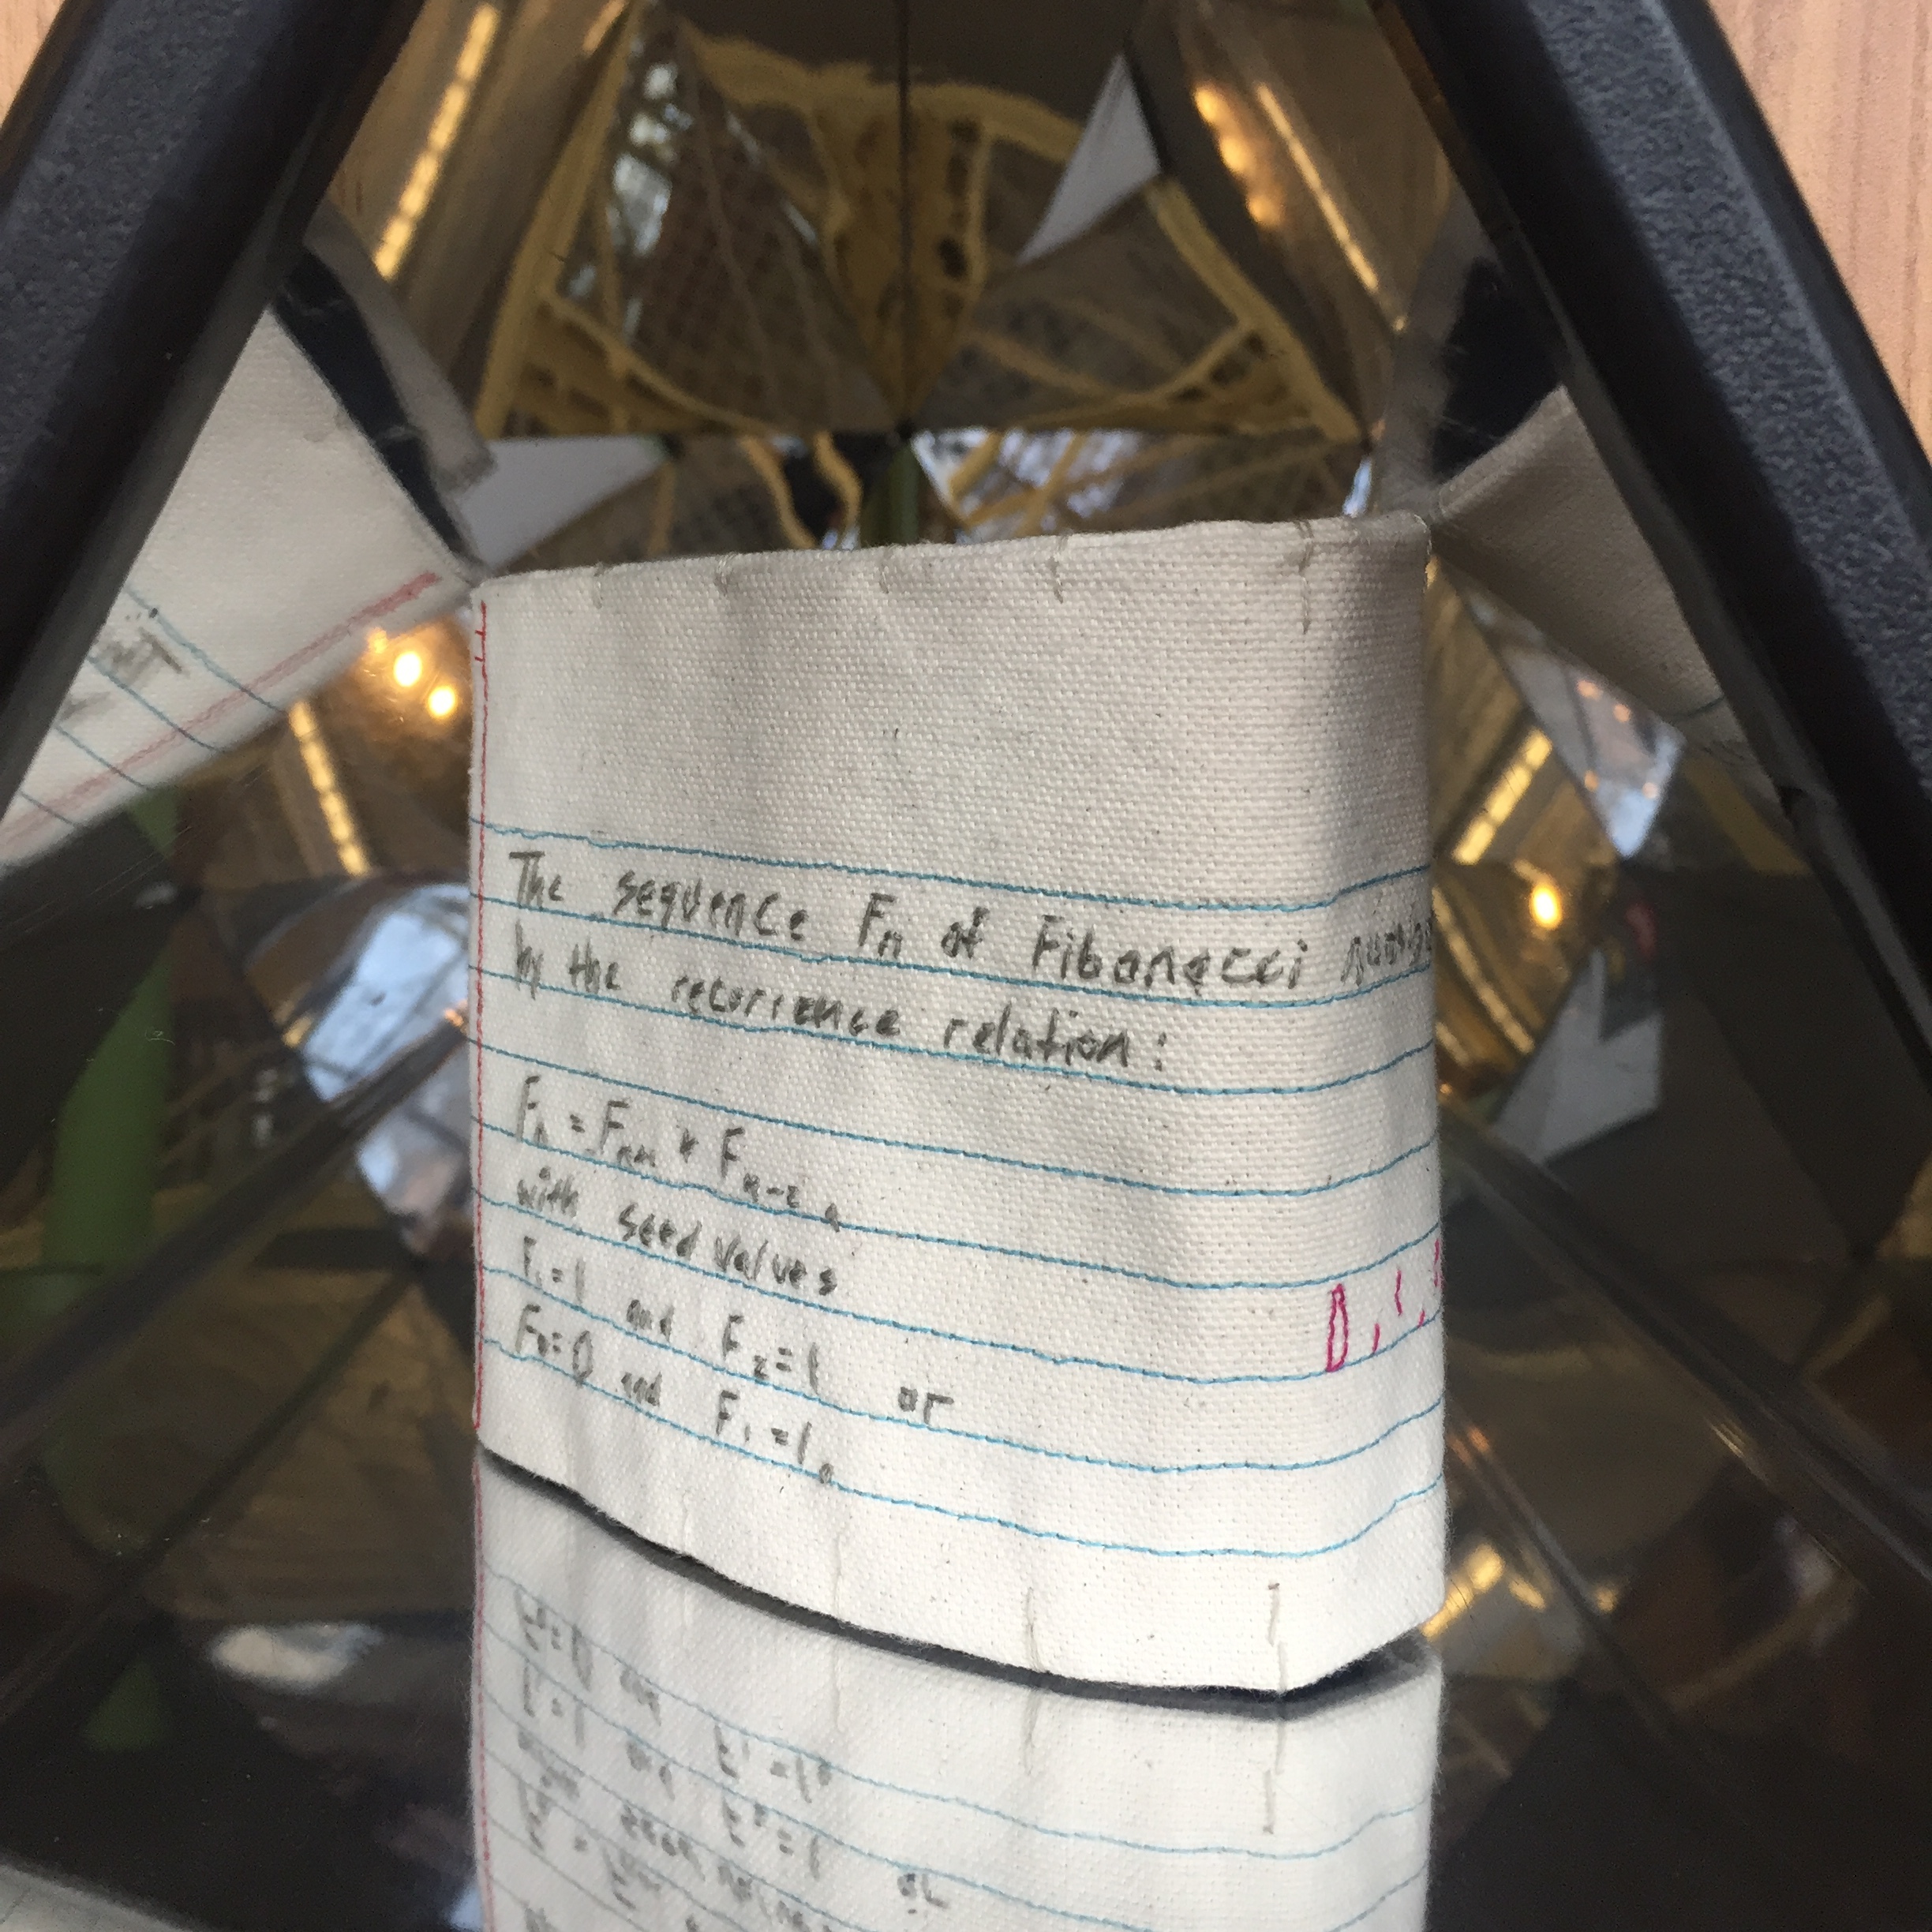 The sequence Fn of Fibonacci
by the recurrence relation:
Fn = Fn-1 + Fn-2,
with seed values
F1=1 and F2=1 or
F0=0 and F1=1.
0, 1,